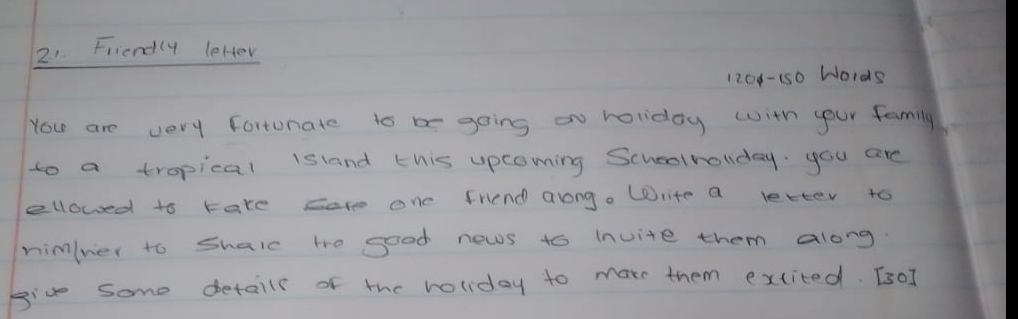 2. Friendly letter
120-150 Words
You are very fortunate to be going on holiday with your family,
to a tropical Island this upcoming Schoolholiday. you are
ellowed to take one friend along. Write a letter to
him/her to Share the good news to Invite them along.
give Some details of the holiday to make them excited. [30]